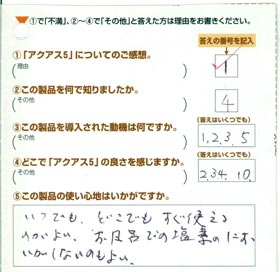 ①で「不満」、②~④で「その他」と答えた方は理由をお書きください。
答えの番号を記入
①「アクアス5」についてのご感想。
(理由 )
1
②この製品を何で知りましたか。
(その他 )
4
(答えはいくつでも)
③この製品を導入された動機は何ですか。
(その他 )
1,2,3,5
(答えはいくつでも)
④どこで「アクアス5」の良さを感じますか。
(その他 )
2,3,4,10
⑤この製品の使い心地はいかがですか。
いつでも、どこでもすぐ使える
のがよい、お風呂での塩素のにお
いがしないのもよい、